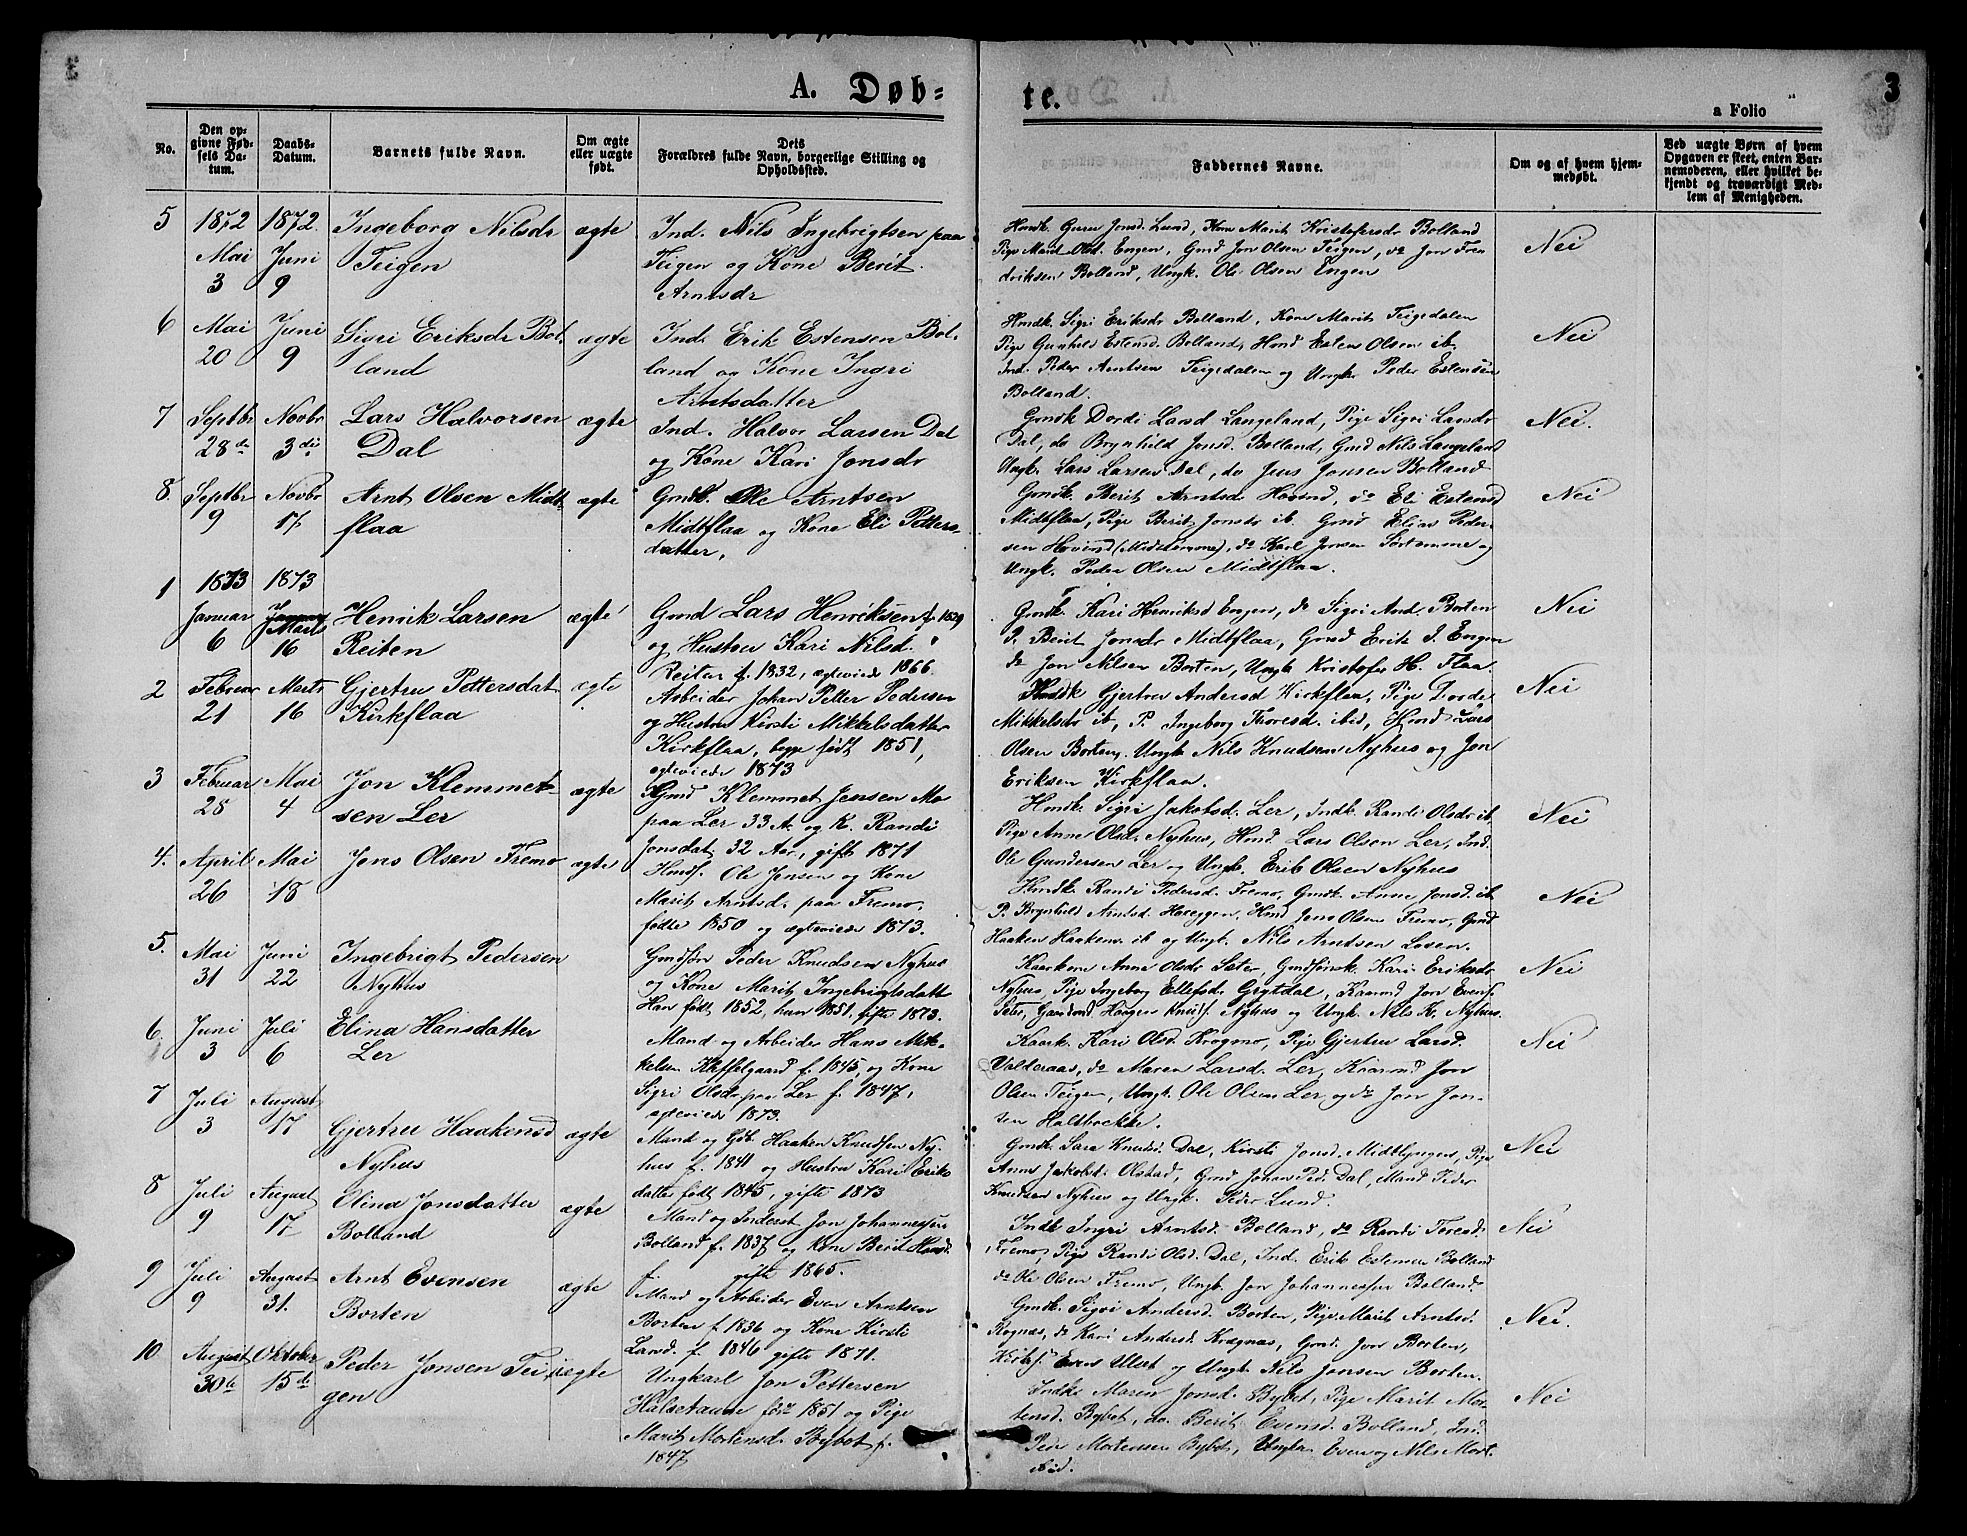 A. Døb=
te.
3
a Folio
No.
Den op=
givne Fød=
sels Da=
tum.
Daabs=
Datum.
Barnets fulde Navn.
Om ægte
eller uægte
født.
Dets
Forældres fulde Navn, borgerlige Stilling og
Opholdssted.
Faddernes Navne.
Om og af hvem hjem=
medøbt.
Ved uægte Børn af hvem
Opgaven er skeet, enten Bar=
nemoderen, eller hvilket be=
kjendt og troværdigt Med=
lem af Menigheden.
5
1872
Mai
3
1872.
Juni
9
Ingeborg Nilsdr
Teigen
ægte
Ind. Nils Ingebrigtsen paa
Teigen og Kone Berit
Arntsdr
Hmdk. Guru Jonsd. Lund, Kone Marit Kristofersdr Bolland
Pige Marit Olsd. Engen, Gmd Jon Olsen Teigen, do Jon Fre
driksen Bolland, Ungk. Ole Olsen Engen
Nei
6
Mai
20
Juni
9
Sigri Eriksdr Bol
land
ægte
Ind. Erik Estensen Bol.
land og Kone Ingri
Arntsdatter
Hmdk. Sigri Eriksdr Bolland, Kone Marit Teigedalen
Pige Gunhild Estensd. Bolland, Hmd Esten Olsen ib.
Ind. Peder Arntsen Teigedalen og Ungk. Peder Estensen
Bolland.
Nei
7
Septbr
28de
Novbr
3die
Lars Halvorsen
Dal
ægte
Ind. Halvor Larsen Dal
og Kone Kari Jonsdr
Gmdk Dordi Larsd Langeland, Pige Sigri Larsdr
Dal, do Brynhild Jonsd. Bolland, Gmd Nils Langeland
Ungk. Lars Larsen Dal, do Jens Jonsen Bolland
Nei.
8.
Septbr
9
Novbr
17
Arnt Olsen Midt
flaa
ægte
Gmdk. Ole Arntsen
Midtflaa og Kone Eli Petters=
datter.
Gmdk. Berit Arntsdr Hovind, do Eli Estensd
Midtflaa, Pige Berit Jonsdr ib. Gmd Elias Peder
sen Hovind (Midthermo), do Karl Jonsen Sortemme og
Ungk. Peder Olsen Midtflaa.
Nei
1
1873
Januar
6
1873
Marts
16
Henrik Larsen
Reiten
ægte
Gmd Lars Henriksen f. 1829
og Hustru Kari Nilsd.
Reitan f. 1832, ægteviede 1866.
Gmdk. Kari Henriksd Engen, do Sigri And. Borten
P. Berit Jonsdr Midtflaa, Gmd Erik I. Engen
do Jon Nilsen Borten, Ungk Kristofer H. Flaa.
Nei
2
Februar
21
Marts
16
Gjertru Pettersdat
Kirkflaa
ægte
Arbeider Johan Petter Pedersen
og Hustru Kirsti Mikkelsdatter
Kirkflaa, begge født 1851,
ægteviede 1873
Hmdk Gjertru Andersd Kirkflaa, Pige Dordi
Mikkelsdr ib, P. Ingeborg Thoresd. ibid, Hmd Lars
Olsen Borten, Ungk Nils Knudsen Nyhus og Jon
Eriksen Kirkflaa.
Nei
3
Februar
28
Mai
4
Jon Klemmet=
sen Ler
ægte
Gmd Klemmet Jensen Mo
paa Ler 33 A. og K. Randi
Jonsdat 32 Aar, gift 1871
Hmdk. Sigri Jakobsd. Ler, Indk. Randi Olsdr ib
Pige Anne Olsd. Nyhus, Hmd. Lars Olsen Ler, Ind.
Ole Gundersen Ler og Ungk. Erik Olsen Nyhus
Nei
4.
April
26
Mai
18
Jens Olsen Fremo
ægte
Hmdf. Ole Jensen og Kone
Marit Arntsd. paa Fremo,
fødte 1850 og ægteviede 1873.
Hmdk Randi Pedersd. Fremo, Gmdk. Anne Jonsd. ib
P. Brynhild Arntsd. Horeggen, Hmd Jens Olsen Fremo, Gmd
Haaken Haakens. ib og Ungk. Nils Arntsen Losen.
Nei
5.
Mai
31
Juni
22
Ingebrigt Pedersen
Nyhus
Gmdsøn Peder Knudsen Nyhus
og Kone Marit Ingebrigtsdatt
Han født 1852, hun 1851, gifte 1873.
Kaarkone Anne Olsdr Sæter, Gmdsønsk. Kari Eriksdr
Nyhus, Pige Ingeborg Ellefsd. Grytdal, Kaarmd Jon Evens.
Sæter, Gaardmd. Haagen Knuts. Nyhus og Ungk. Nils K. Nyhus.
Nei
6.
Juni
3
Juli
6
Elina Hansdatter
Ler
Mand og Arbeider Hans Mik=
kelsen Kaffelgaard f. 1845, og Kone
Sigri Olsd. paa Ler f. 1847,
ægteviede 1873.
Kaark. Kari Olsd. Krogmo, Pige Gjertru Larsd.
Valderaas, do Maren Larsd. Ler, Kaarmd Jon
Olsen Teigen, Ungk. Ole Olsen Ler og do Jon Jon=
sen Haltbakke.
Nei
7
Juli
3
August
17
Gjertru Haakensd
Nyhus
ægte
Mand og Gdb. Haaken Knudsen Ny=
hus f. 1841 og Hustru Kari Eriks
datter født 1845, gifte 1873
Gmdk. Sara Knudsd. Dal, Kirsti Jonsd. Midtlyngen, Pige
Anne Jakobsd. Olstad, Gmd Johan Ped. Dal, Mand Peder
Knudsen Nyhus og Ungk. Peder Lund.
Nei
8
Juli
9
August
17
Olina Jonsdatter
Bolland
ægte
Mand og Inderst Jon Johannessen
Bolland f. 1837 og Kone Berit Hansd.
f. gifte 1865.
Indk Ingri Arntsd. Bolland, do Randi Toresd.
Fremo, Pige Randi Olsd. Dal, Ind. Erik Estensen Bolland
do Ole Olsen Fremo, Ungk. Jon Johannessen Bolland.
Nei
9
Juli
9
August
31.
Arnt Evensen
Borten
ægte
Mand og Arbeider Even Arntsen
Borten f. 1836 og Kone Kirsti
Larsd. f. 1846 gifte 1871.
Gmdk. Sigri Andersd. Borten, Pige Marit Arntsd.
Rognæs, do Kari Andersd. Kragnæs, Gmd. Jon Borten,
Even Ulset og Ungk. Nils Jonsen Borten.
Nei.
10
August
30te
Oktober
15de
Peder Jonsen Tei=
gen
uægte
Ungkarl Jon Pettersen
Halsetaune født 1851 og Pige
Marit Mortensd. Bybot f.
1847
Indk. Maren Jonsd. Bybot, Pige Marit Mor
tensd. Bybot, do. Berit Evensd. Bolland, Ind.
Peder Mortensen Bybot, Ungk. Even og Nils Mort.
ibid.
Nei